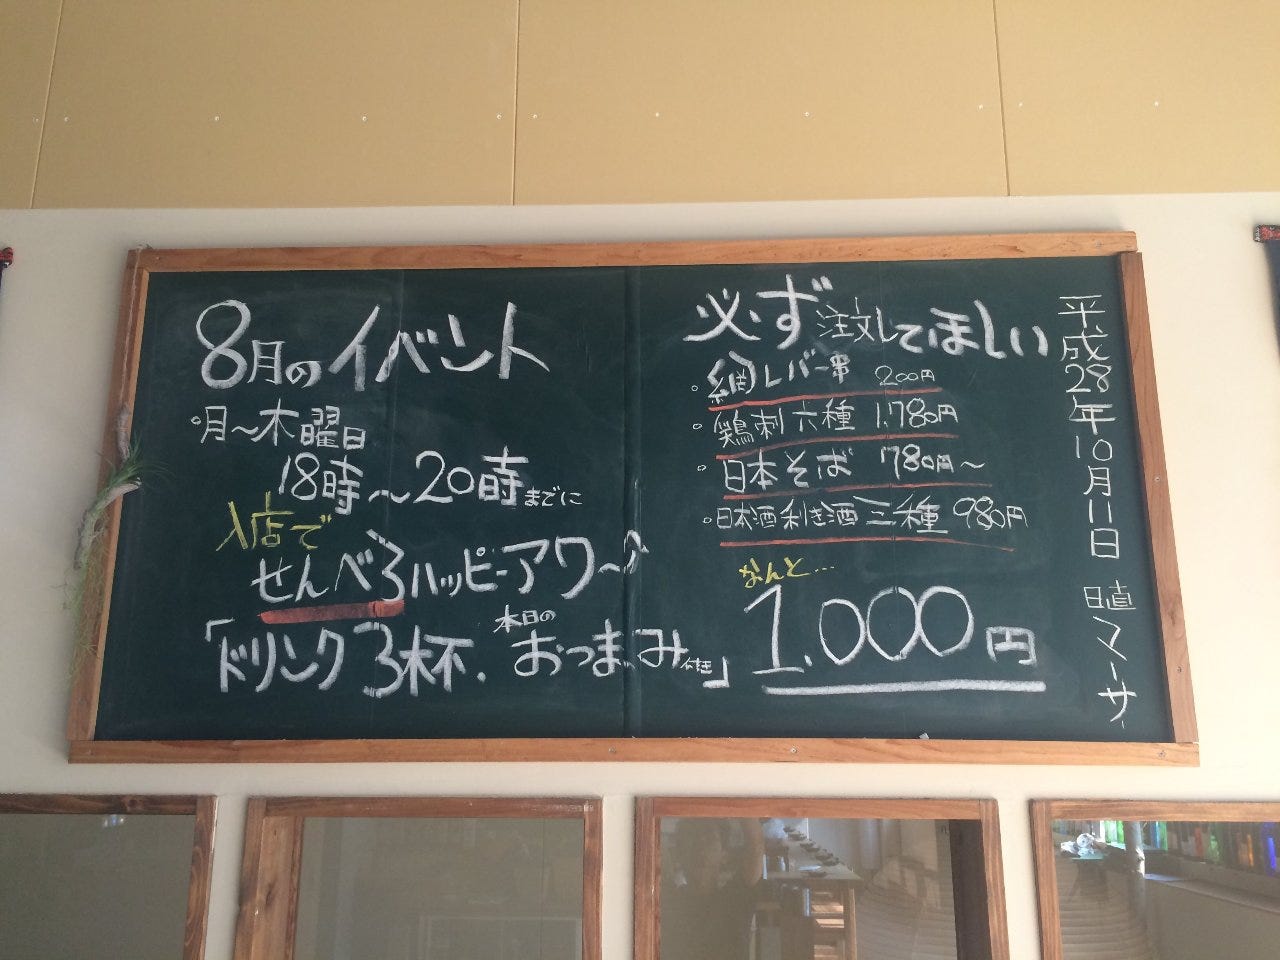 8月のイベント
・月～木曜日
18時～20時までに
入店で
せんべろハッピーアワ～♪
「ドリンク3杯、本日のおつまみ付き」
なんと…
1.000円
必ず注文してほしい
・網レバー串 200円
・鶏刺六種 1.780円
・日本そば 780円～
・日本酒利き酒三種 980円
平成28年10月11日 日直 マーサ